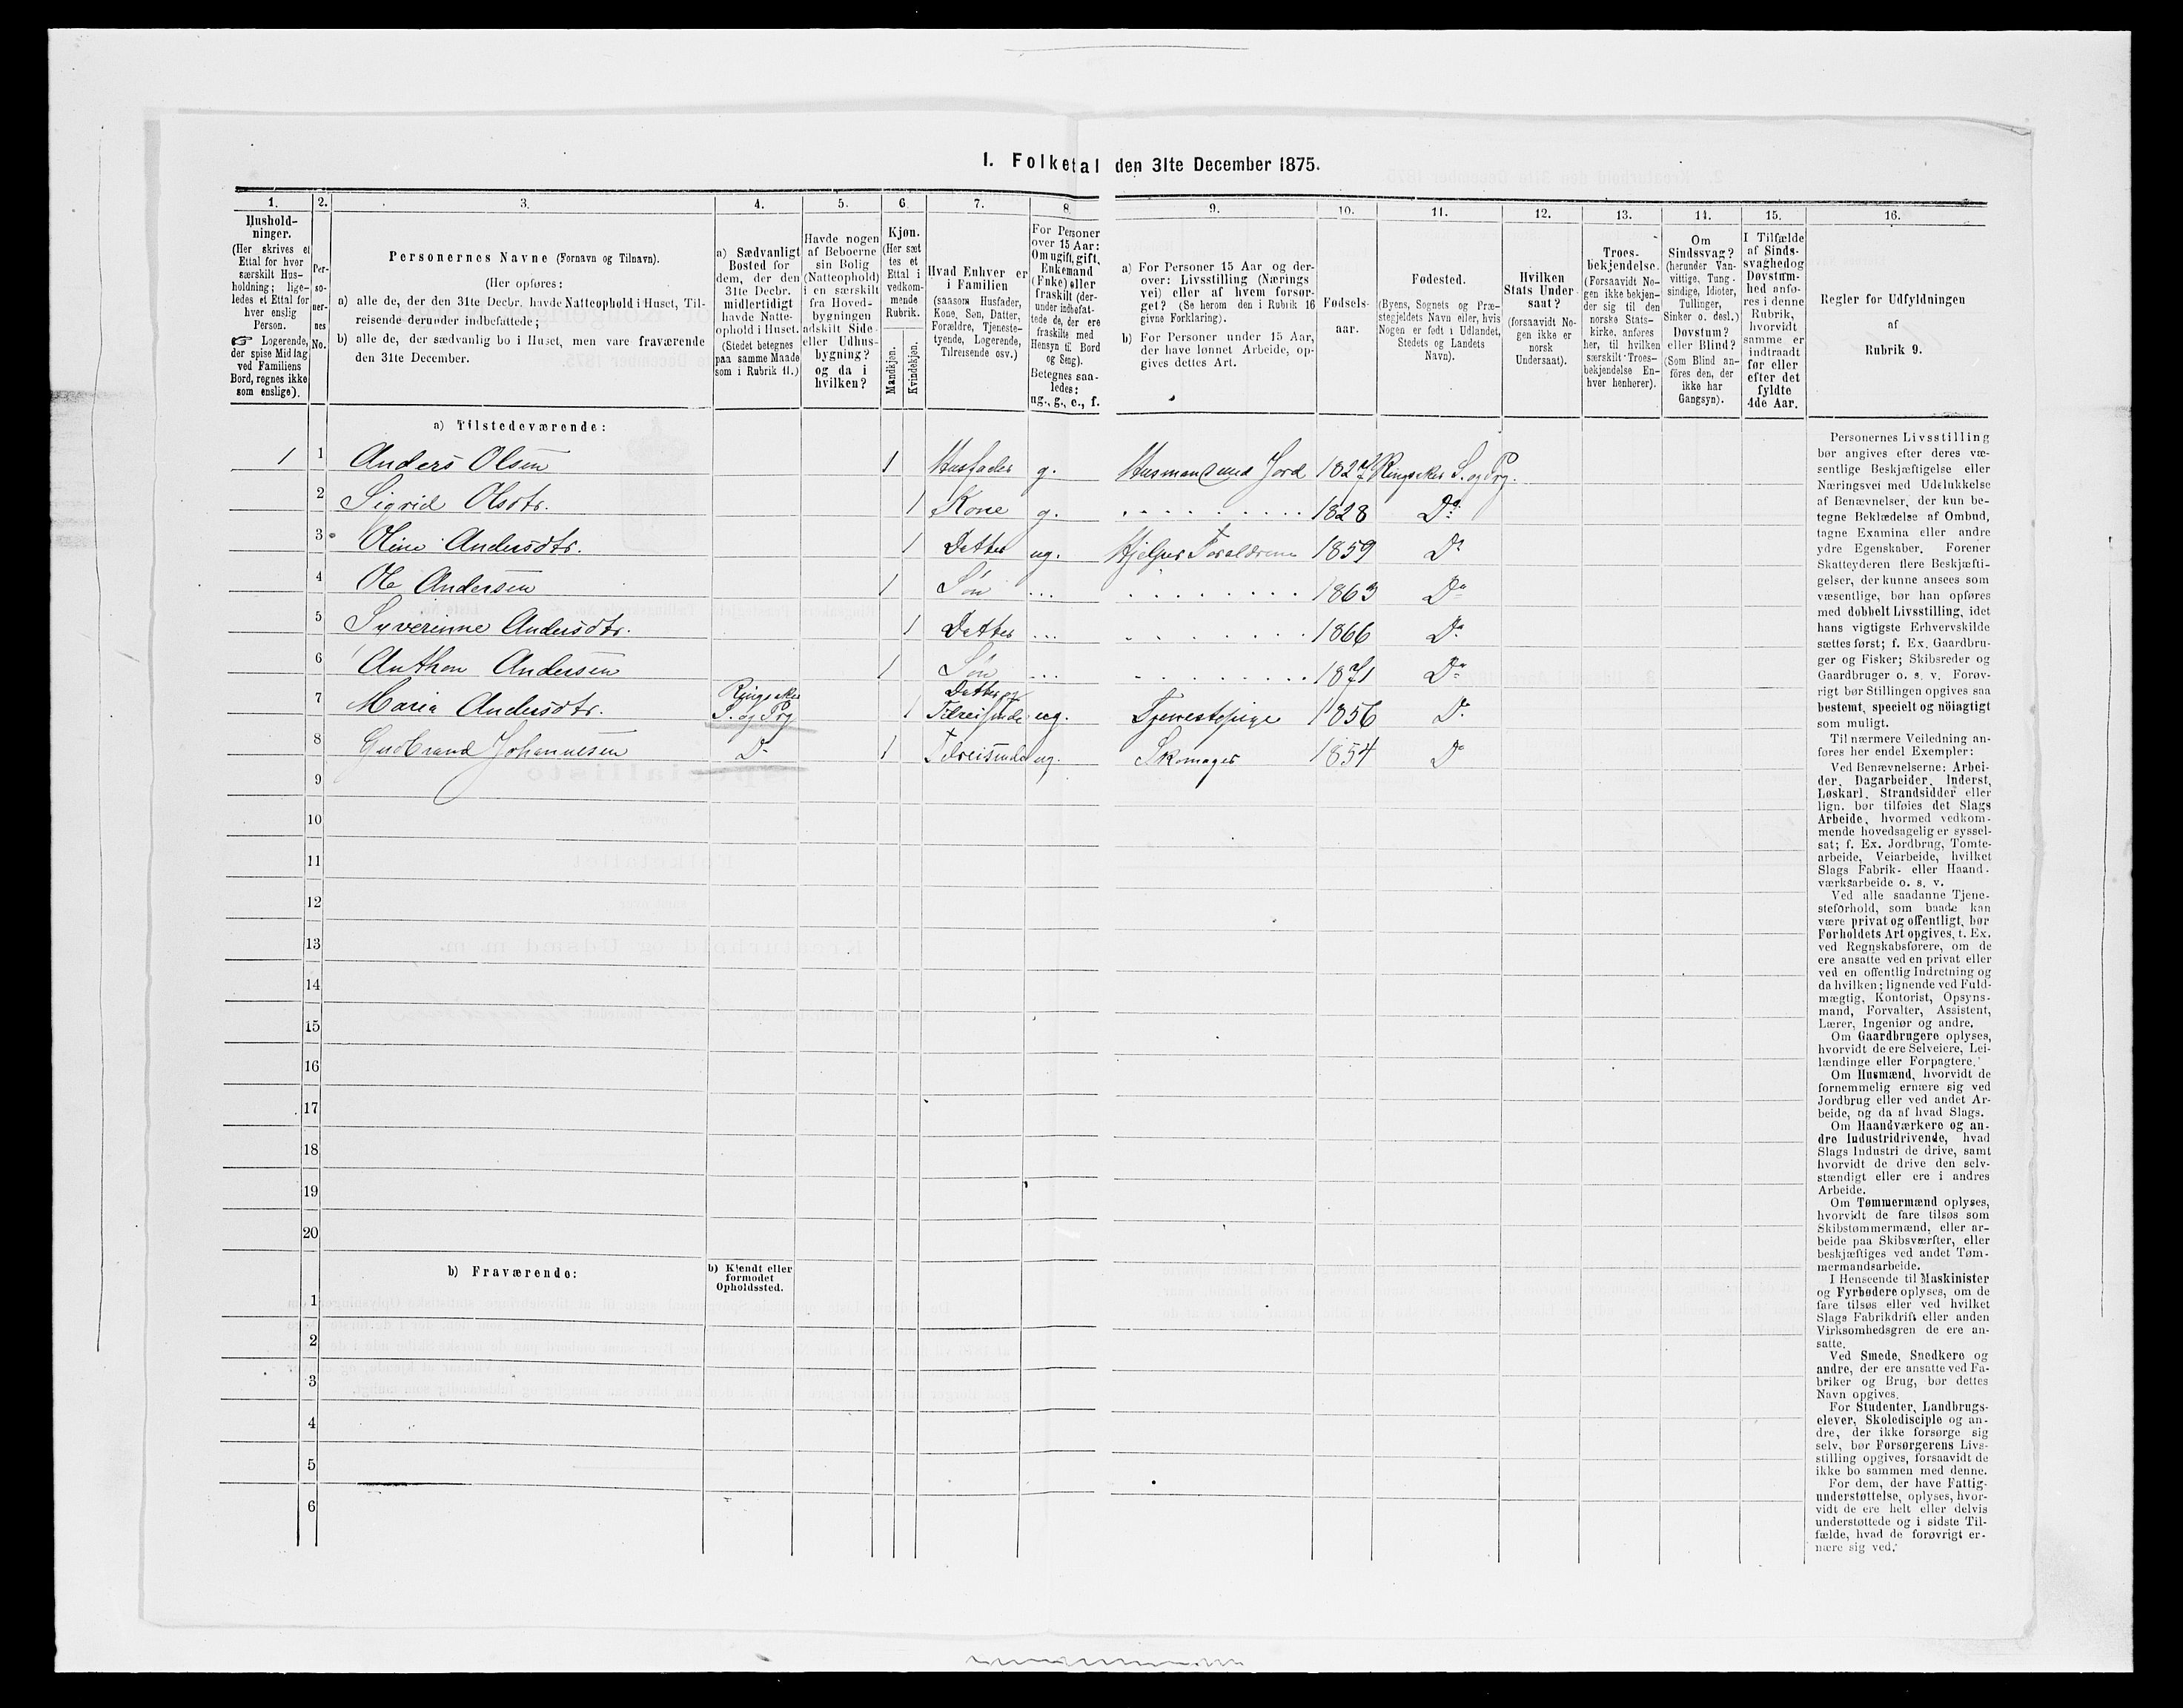 1. Folketal den 31te December 1875.
1. 2. 3. 4. 5. 6. 7. 8. 9. 10. 11. 12. 13. 14. 15. 16.
Hushold-
ninger.
(Her skrives et
Ettal for hver
særskilt Hus-
holdning; lige-
ledes et Ettal for
hver enslig
Person.
☞ Logerende,
der spise Middag
ved Familiens
Bord, regnes ikke
som enslige).
Per-
so-
ner-
nes
No.
Personernes Navne (Fornavn og Tilnavn).
(Her opføres:
a) alle de, der den 31te Decbr. havde Natteophold i Huset, Til-
reisende derunder indbefattede;
b) alle de, der sædvanlig bo i Huset, men vare fraværende
den 31te December.
a) Sædvanligt
Bosted for
dem, der den
31te Decbr.
midlertidigt
havde Natte-
ophold i Huset.
(Stedet betegnes
paa samme Maade
som i Rubrik 11.)
Havde nogen
af Beboerne
sin Bolig
(Natteophold)
i en særskilt
fra Hoved-
bygningen
adskilt Side-
eller Udhus-
bygning?
og da i
hvilken?
Kjøn.
(Her sæt
tes et
Ettal i
vedkom-
mende
Rubrik.
Mandkjøn.
Kvindekjøn.
Hvad Enhver er
i Familien
(saasom Husfader,
Kone, Søn, Datter,
Forældre, Tjeneste-
tyende, Logerende,
Tilreisende osv.)
For Personer
over 15 Aar:
Om ugift, gift,
Enkemand
(Enke) eller
fraskilt (der-
under indbefat-
tede de, der ere
fraskilte med
Hensyn til Bord
og Seng).
Betegnes saa-
ledes:
ug., g., e., f.
a) For Personer 15 Aar og der-
over: Livsstilling (Nærings
vei) eller af hvem forsør-
get? (Se herom den i Rubrik 16
givne Forklaring).
b) For Personer under 15 Aar,
der have lønnet Arbeide, op-
gives dettes Art.
Fødsels-
aar.
Fødested.
(Byens, Sognets og Præ-
stegjeldets Navn eller, hvis
Nogen er født i Udlandet,
Stedets og Landets
Navn).
Hvilken
Stats Under-
saat?
(forsaavidt No-
gen ikke er
norsk
Undersaat).
Troes-
bekjendelse.
(Forsaavidt No-
gen ikke bekjen-
der sig til den
norske Stats-
kirke, anføres
her, til hvilken
særskilt Troes-
bekjendelse En-
hver henhører).
Om
Sindssvag?
(herunder Van-
vittige, Tung-
sindige, Idioter,
Tullinger,
Sinker o. desl.)
Døvstum?
eller Blind?
(Som Blind an-
føres den, der
ikke har
Gangsyn).
I Tilfælde
af Sinds-
svaghed og
Døvstum-
hed anfø-
res i denne
Rubrik,
hvorvidt
samme er
indtraadt
før eller
efter det
fyldte
4de Aar.
Regler for Udfyldningen
af
Rubrik 9.
a) Tilstedeværende:
1 1 Anders Olsen 1 Husfader g. Husmand med Jord 1827 Ringsaker S. og Prg.
2 Sigrid Olsdtr. 1 Kone g. 1828 Do
3 Oline Andersdtr. 1 Datter ug. Hjelper Foraldrene 1859 Do
4 Ole Andersen 1 Søn ... 1863 Do
5 Syverinne Andersdtr. 1 Datter ... 1866 Do
6 Anthon Andersen 1 Søn ... 1871 Do
7 Maria Andersdtr. Ringsaker S. og Prg 1 Datter og Tilreisende ug. Tjenestepige 1856 Do
8 Gudbrand Johannesen Do 1 Tilreisende ug. Skomager 1854 Do
9
10
11
12
13
14
15
16
17
18
19
20
b) Fraværende:
b) Kjendt eller
formodet
Opholdssted.
1
2
3
4
5
6
Personernes Livsstilling
bør angives efter deres væ-
sentlige Beskjæftigelse eller
Næringsvei med Udelukkelse
af Benævnelser, der kun be-
tegne Beklædelse af Ombud,
tagne Examina eller andre
ydre Egenskaber. Forener
Skatteyderen flere Beskjæfti-
gelser, der kunne ansees som
væsentlige, bør han opføres
med dobbelt Livsstilling, idet
hans vigtigste Erhvervskilde
sættes først; f. Ex. Gaardbru-
ger og Fisker; Skibsreder og
Gaardbruger o. s. v. Forøv-
rigt bør Stillingen opgives saa
bestemt, specielt og nöiagtigt
som muligt.
Til nærmere Veiledning an-
føres her endel Exempler:
Ved Benævnelserne: Arbei-
der, Dagarbeider, Inderst,
Løskarl, Strandsidder eller
lign. bør tilføies det Slags
Arbeide, hvormed vedkom-
mende hovedsagelig er syssel-
sat; f. Ex. Jordbrug, Tomte-
arbeide, Veiarbeide, hvilket
Slags Fabrik- eller Haand-
værksarbeide o. s. v.
Ved alle saadanne Tjene-
steforhold, som baade kan
være privat og offentligt, bør
Forholdets Art opgives, t. Ex.
ved Regnskabsførere, om de
ere ansatte ved en privat eller
ved en offentlig Indretning og
da hvilken; lignende ved Fuld-
mægtig, Kontorist, Opsyns-
mand, Forvalter, Assistent,
Lærer, Ingeniør og andre.
Om Gaardbrugere oplyses,
hvorvidt de ere Selveiere, Lei-
lændinge eller Forpagtere.
Om Husmænd, hvorvidt de
fornemmelig ernære sig ved
Jordbrug eller ved andet Ar-
beide, og da af hvad Slags.
Om Haandværkere og an-
dre Industridrivende, hvad
Slags Industri de drive, samt
hvorvidt de drive den selv-
stændigt eller ere i andres
Arbeide.
Om Tømmermænd oplyses,
hvorvidt de fare tilsøs som
Skibstømmermænd, eller ar-
beide paa Skibsværfter, eller
beskjæftiges ved andet Tøm-
mermandsarbeide.
I Henseende til Maskinister
og Fyrbødere oplyses, om de
fare tilsøs eller ved hvilket
Slags Fabrikdrift eller anden
Virksomhedsgren de ere an-
satte.
Ved Smede, Snedkere og
andre, der ere ansatte ved Fa-
briker og Brug, bør dettes
Navn opgives.
For Studenter, Landbrugs-
elever, Skoledisciple og an-
dre, der ikke forsørge sig
selv, bør Forsørgerens Livs-
stilling opgives, forsaavidt de
ikke bo sammen med denne.
For dem, der have Fattig-
understøttelse, oplyses, hvor-
vidt de ere helt eller delvis
understøttede og i sidste Til-
fælde, hvad de forøvrigt er-
nære sig ved.